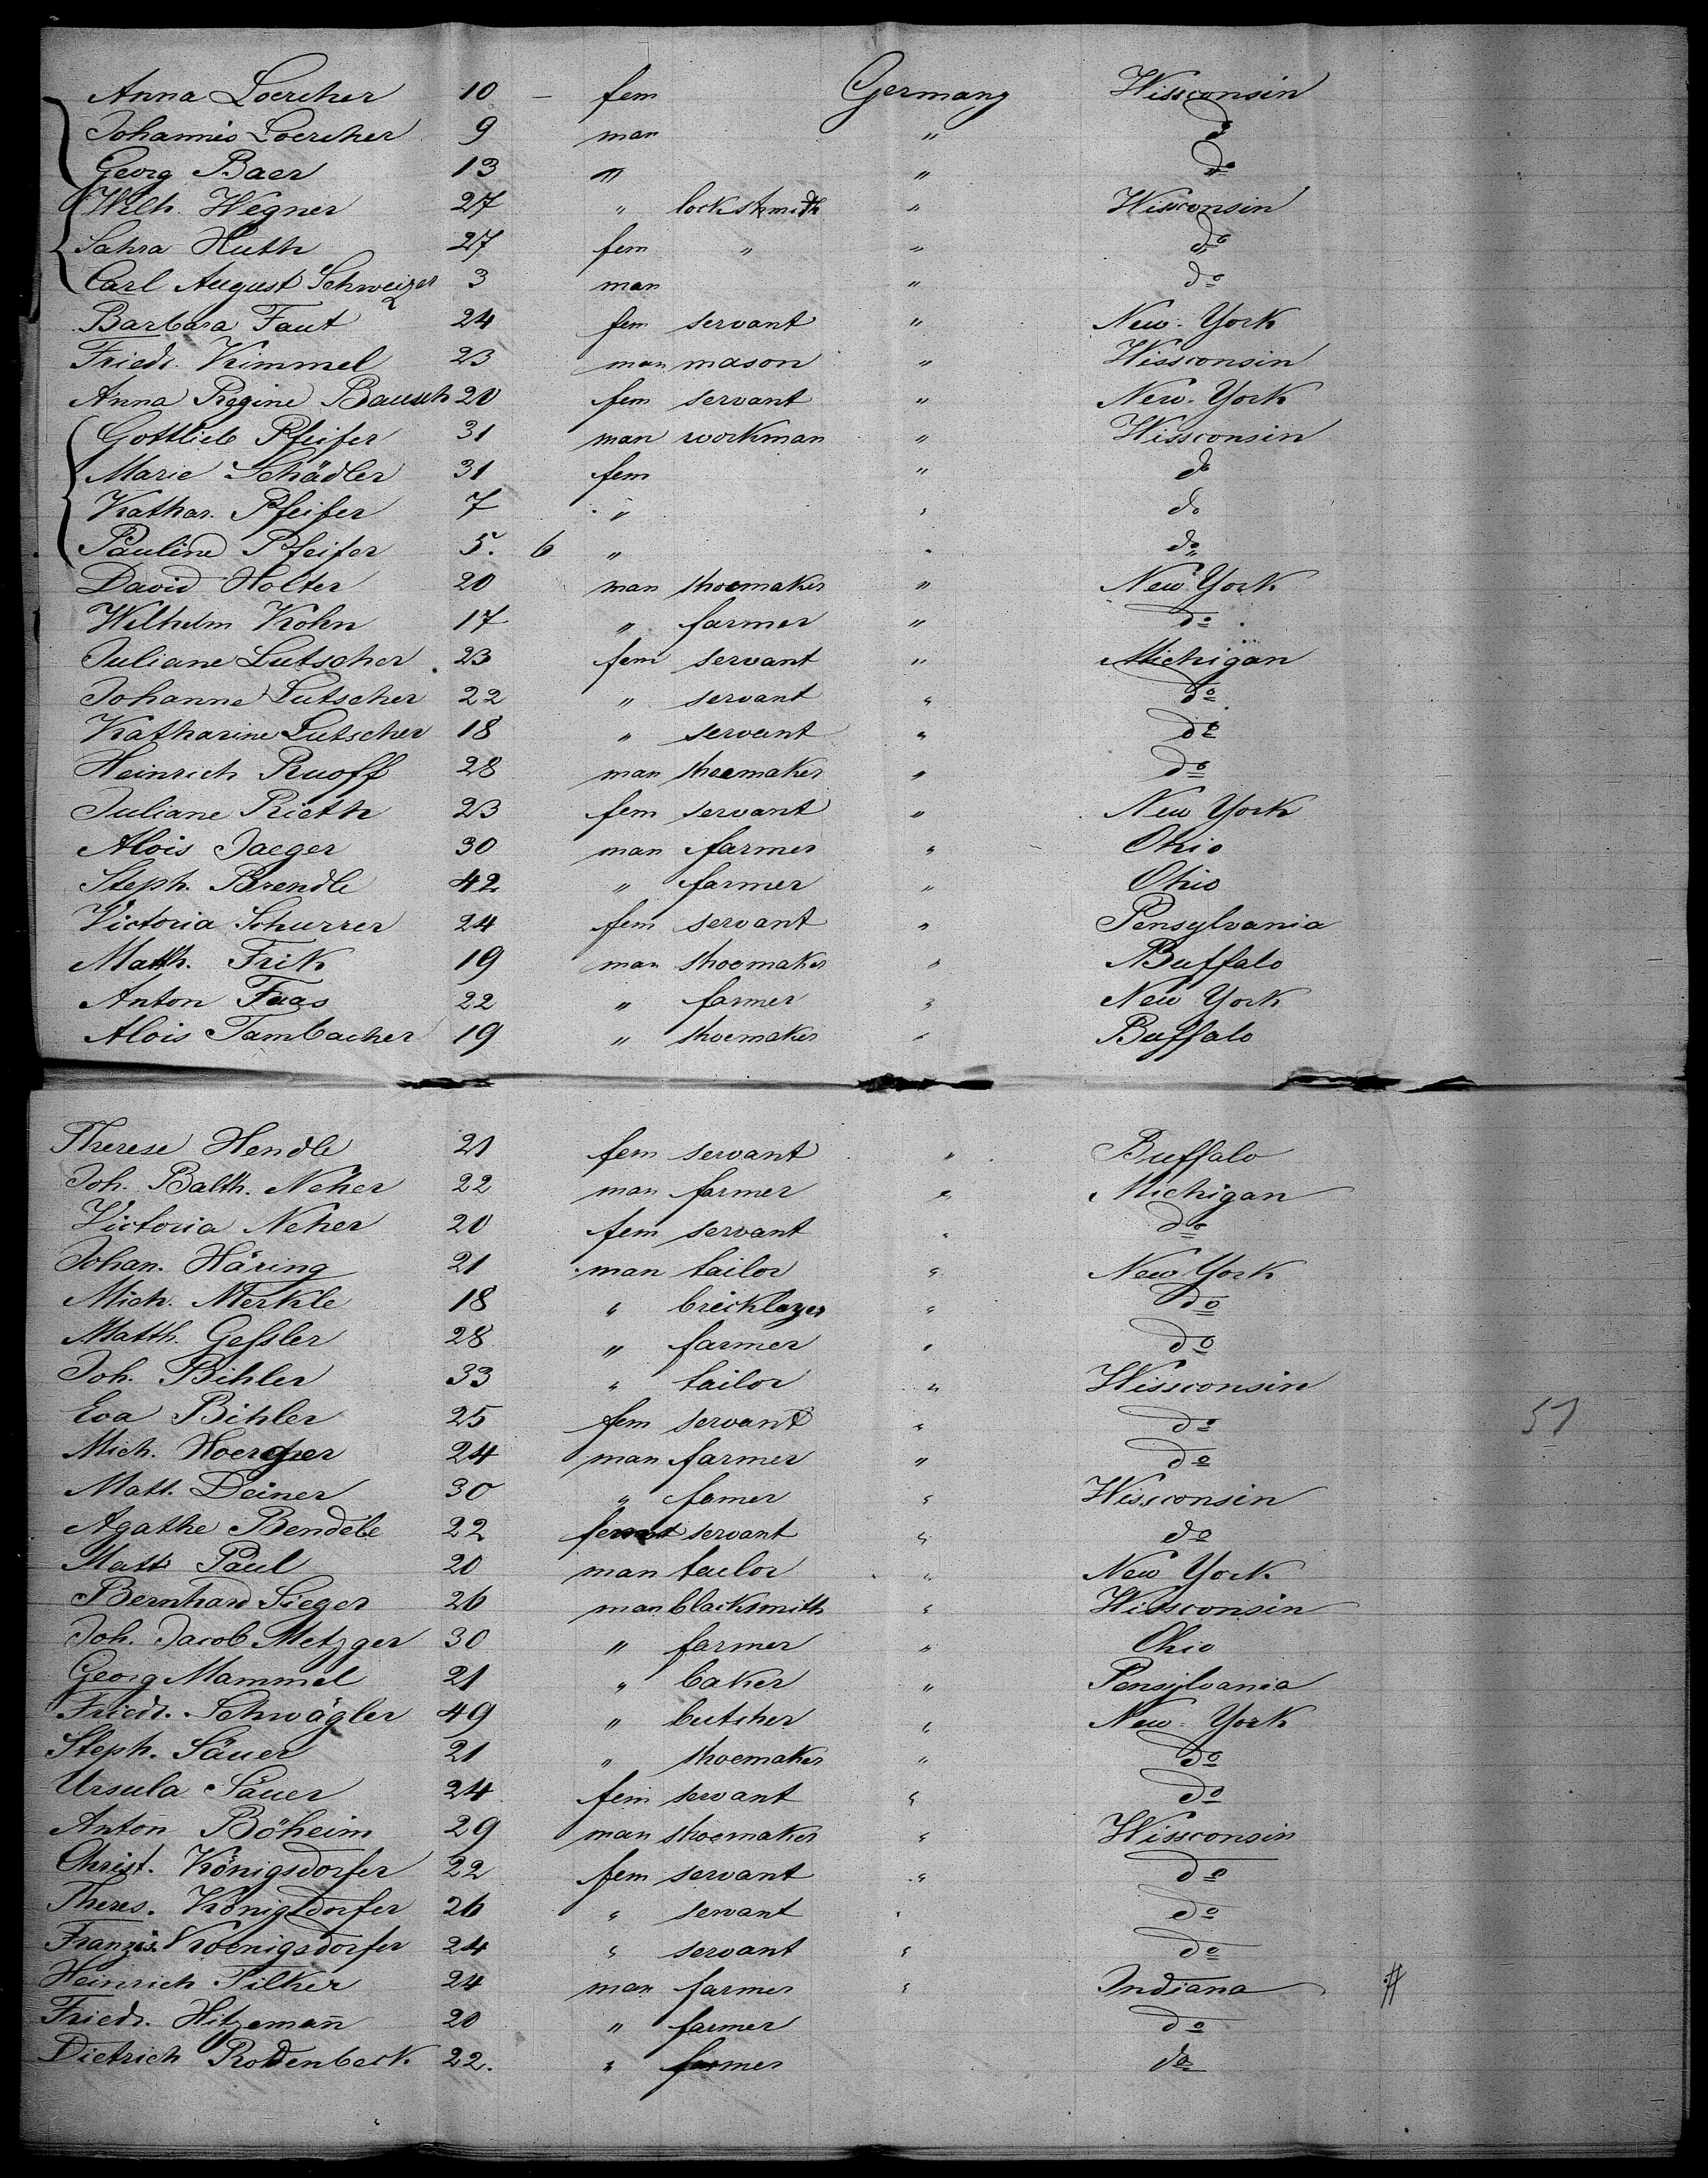 Anna Loercher 10 — fem Germany Wissconsin
Johannes Loercher 9 man " do
Georg Baer 13 " " do
Wilh. Wegner 27 " lockshmidh " Wissconsin
Sahra Huth 27 fem " " do
Carl August Schweizer 3 man " do
Barbara Faut 24 fem servant " New-York
Friedr. Kimmel 23 man mason " Wissconsin
Anna Regine Bausch 20 fem servant " New-York
Gottlieb Pfeifer 31 man workman " Wissconsin
Marie Schädler 31 fem " do
Kathar. Pfeifer 7 " " do
Pauline Pfeifer 5. 6 " " do
David Holter 20 man shoemaker " New York
Wilhelm Kohn 17 " farmer " do
Juliane Lutscher 23 fem servant " Michigan
Johanne Lutscher 22 " servant " do
Katharine Lutscher 18 " servant " do
Heinrich Ruoff 28 man shoemaker " do
Juliane Rieth 23 fem servant " New York
Alois Jaeger 30 man farmer " Ohio
Steph. Brendle 42 " farmer " Ohio
Victoria Schurrer 24 fem servant " Pensylvania
Matth. Frik 19 man shoemaker " Buffalo
Anton Faas 22 " farmer " New York
Alois Tambacher 19 " shoemaker " Buffalo
Therese Hendle 21 fem servant " Buffalo
Joh. Balth. Neher 22 man farmer " Michigan
Victoria Neher 20 fem servant " do
Johan. Häring 21 man tailor " New York
Mich. Merkle 18 " bricklayer " do
Matth. Geſsler 28 " farmer " do
Joh. Bihler 33 " tailor " Wissconsin
Eva Bihler 25 fem servant " do 51
Mich. 24 man farmer " do
Matt. Deiner 30 " famer " Wissconsin
Agathe Bendele 22 fem servant " do
Matt. Paul 20 man tailor " New York
Bernhard Sieger 26 man blacksmith " Wissconsin
Joh. Jacob Metzger 30 " farmer " Ohio
Georg Mammel 21 " baker " Pensylvania
Friedr. Schwägler 49 " butcher " New-York
Steph. Säuer 21 " shoemaker " do
Ursula Säuer 24 fem servant " do
Anton Böheim 29 man shoemaker " Wissconsin
Christ. Königsdorfer 22 fem servant " do
Theres. Königsdorfer 26 " servant " do
Franzis. Koenigsdorfer 24 " servant " do
Heinrich Pilker 24 man farmer " Indiana #
Friedr. Hitzemañ 20 " farmer do
Dietrich Rodenbeck 22. " farmer do